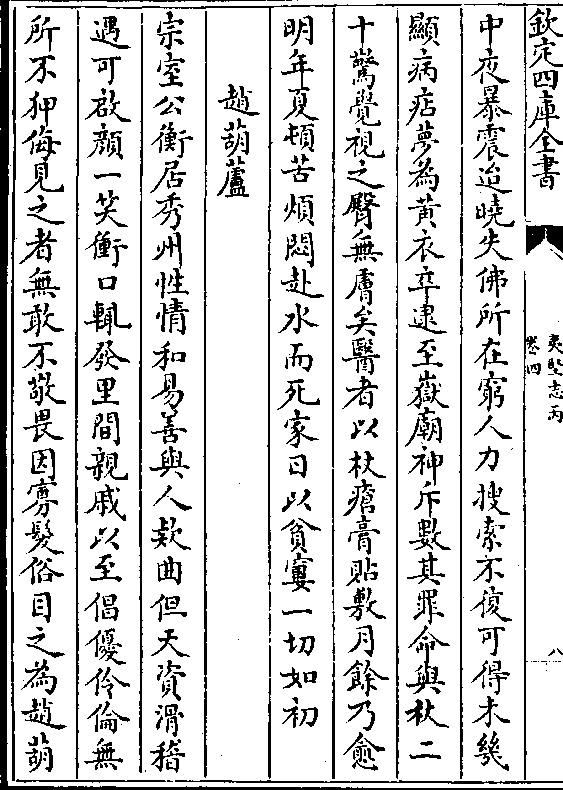 欽定四庫全書
夷堅志丙
卷四
八
中夜暴震迨曉失佛所在窮人力搜索不復可得未幾
顯病痁夢為黃衣卒逮至嶽廟神斥數其罪命與杖二
十驚覺視之臀無膚矣醫者以杖瘡膏貼敷月餘乃愈
明年夏頓苦煩悶赴水而死家日以貧窶一切如初
趙葫蘆
宗室公衡居秀州性情和易善與人欵曲但天資滑稽
遇可啟顔一笑衝口輒發里閭親戚以至倡優伶倫無
所不狎侮見之者無敢不敬畏因寡髮俗目之為趙葫